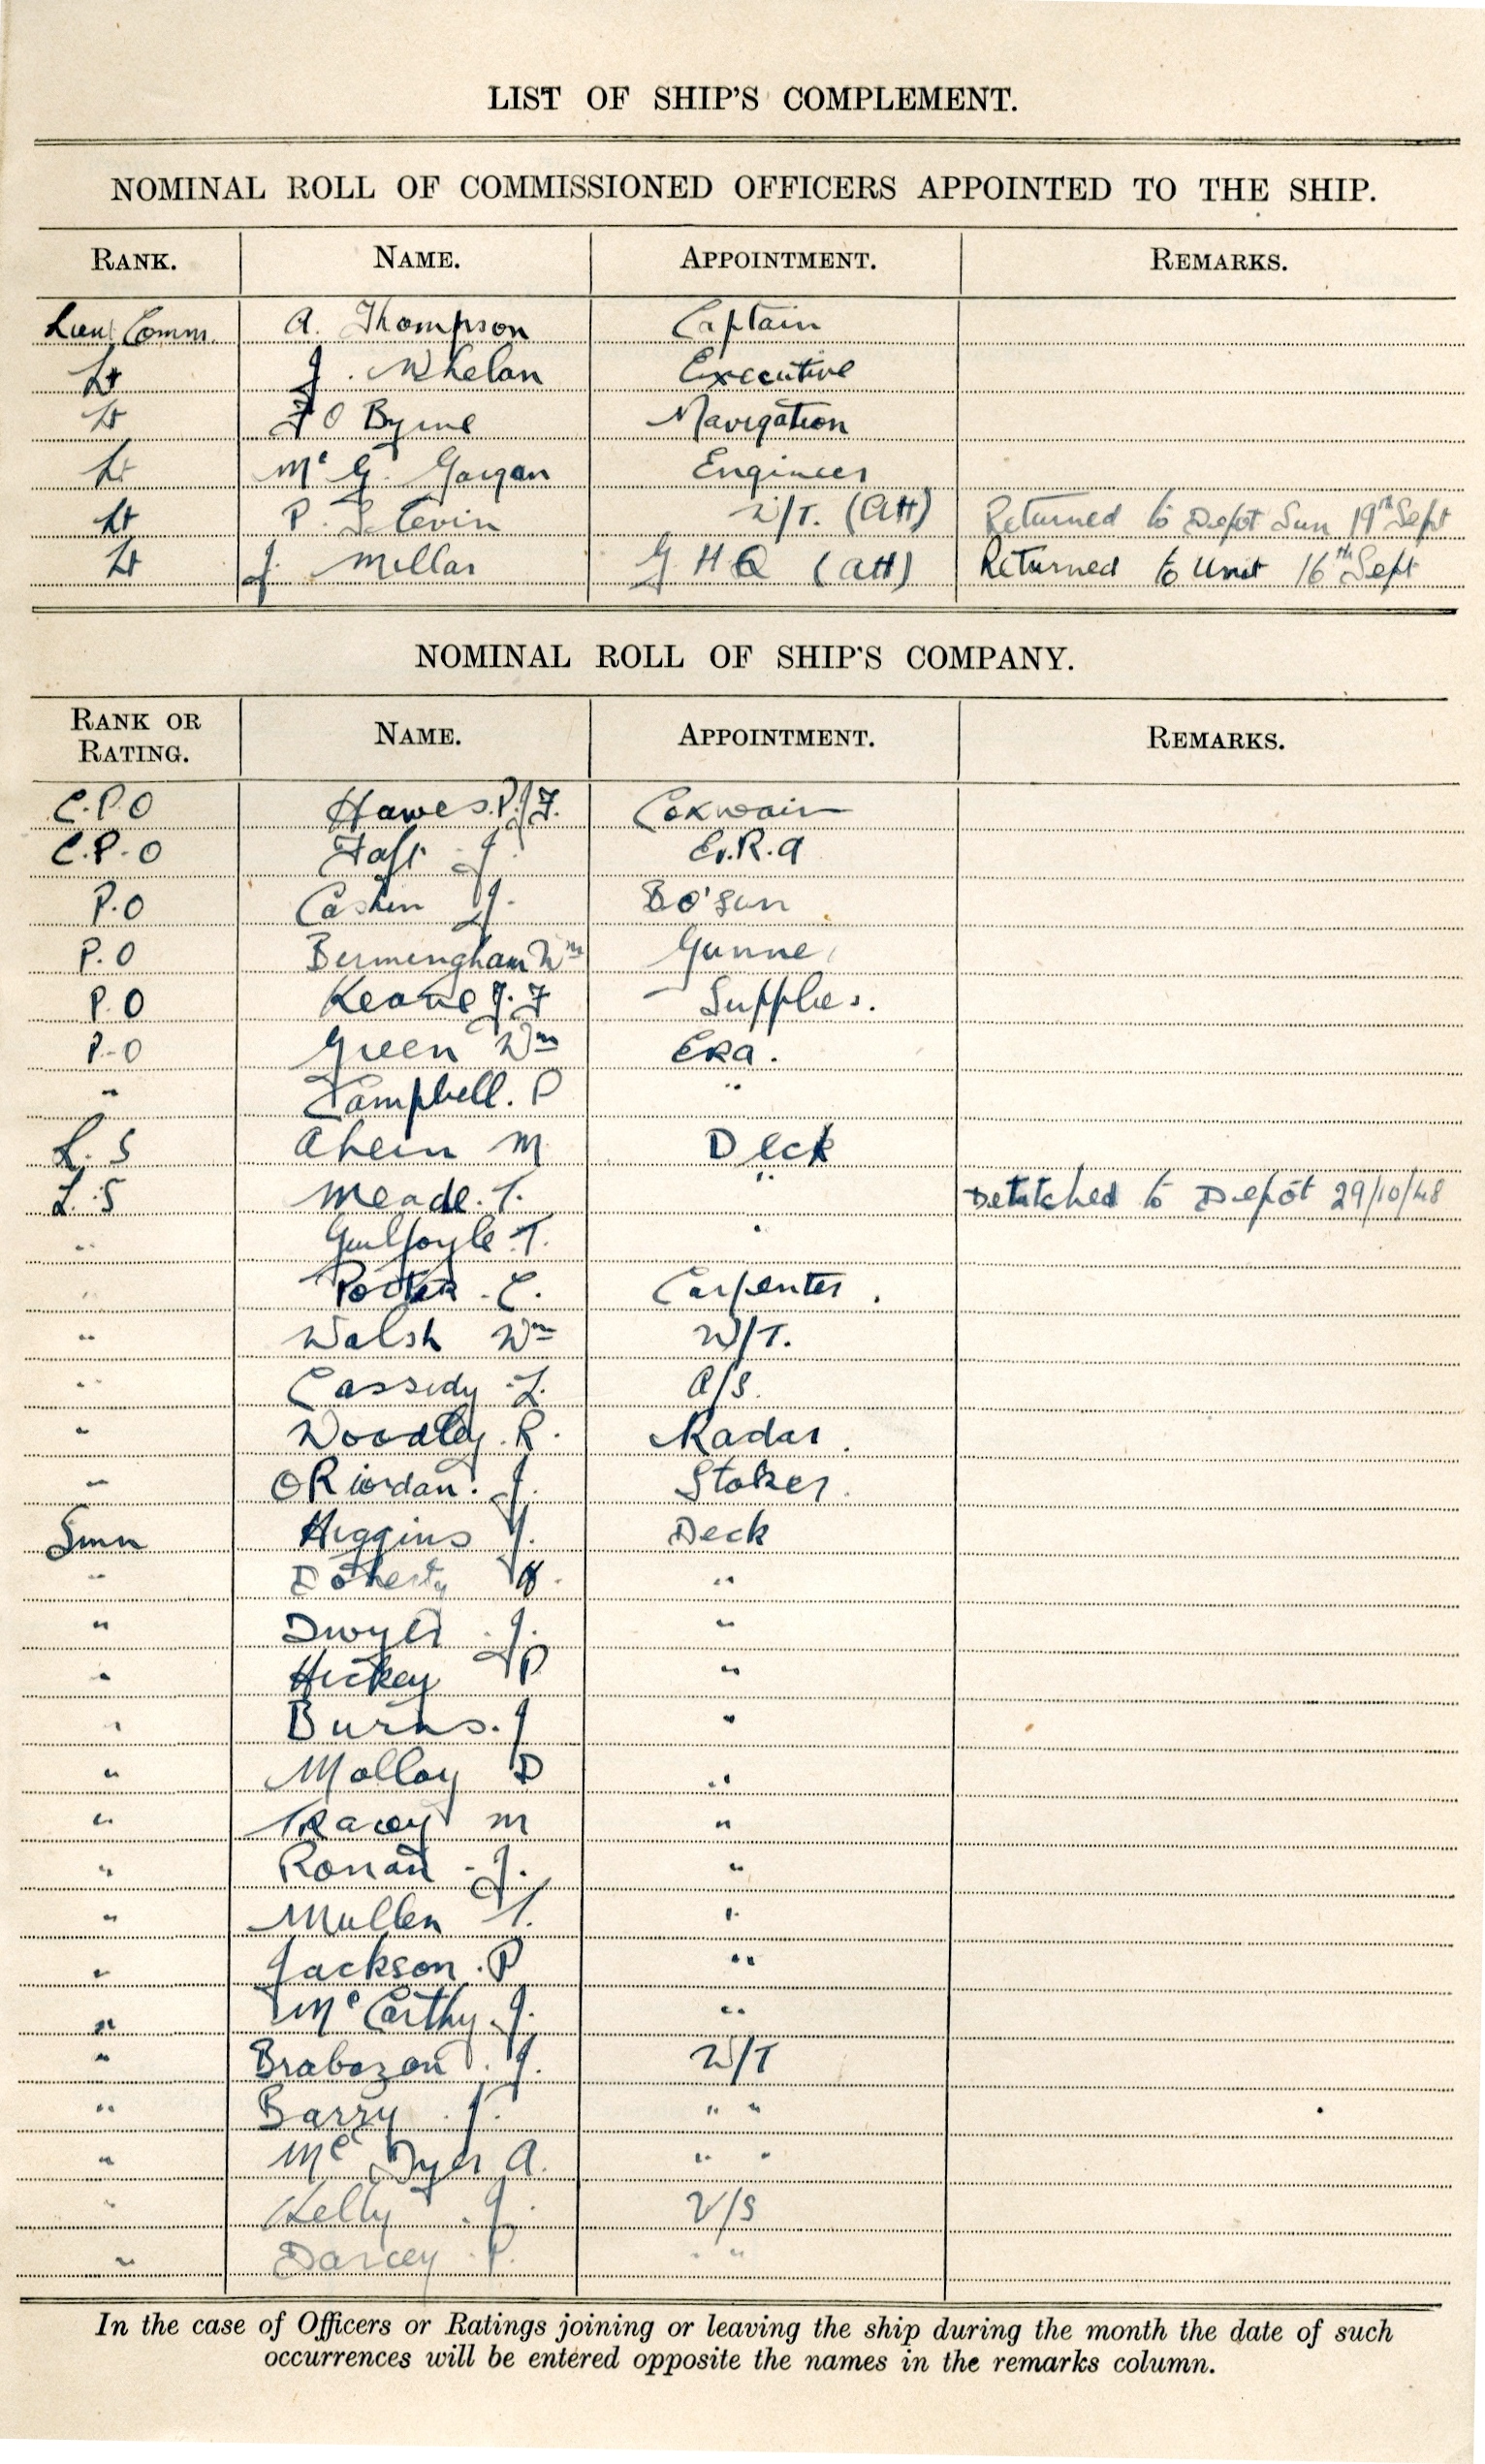 LIST OF SHIP'S COMPLEMENT.
NOMINAL ROLL OF COMMISSIONED OFFICERS APPOINTED TO THE SHIP.
RANK. NAME. APPOINTMENT. REMARKS.
Lieut Comm. A. Thompson Captain
Lt J. Whelan Executive
Lt Byrne Navigation
Lt Mc G. Engineer
Lt P. W/T. (Att) Returned to Depot Sun 19th Sept
Lt J. Millar G H Q (att) Returned to Unit 16th Sept
NOMINAL ROLL OF SHIP'S COMPANY.
RANK OR RATING. NAME. APPOINTMENT. REMARKS.
C.P.O Hawes. P.J. Coxwain
C.P.O J. E.R.A
P.O Cashin J. Bo'sun
P.O Bermingham Wm Gunner
P.O Keane J. F Supplies.
P.O Green Wm ERA.
" Campbell. P "
L. S Ahern M Deck
L. S Meade. T. " Detatched to Depôt 29/10/48
" Guilfoyle T. "
" Porter. C. Carpenter.
" Walsh Wm W/T.
" Cassidy L. A/S.
" Woodley. R. Radar.
" O Riordan. J. Stoker.
Smn Higgins J. Deck
" Doherty "
" Dwyer J. "
" Hickey P "
" Burns. J "
" Molloy D "
" Tracey M "
" Ronan J. "
" Mullen T. "
" Jackson. P "
" Mc Carthy. J. "
" Brabazon. J. W/T
" Barry. J. " "
" Mc Dyer A. " "
" Kelly J. V/S
" Darcey P. " "
In the case of Officers or Ratings joining or leaving the ship during the month the date of such
occurrences will be entered opposite the names in the remarks column.